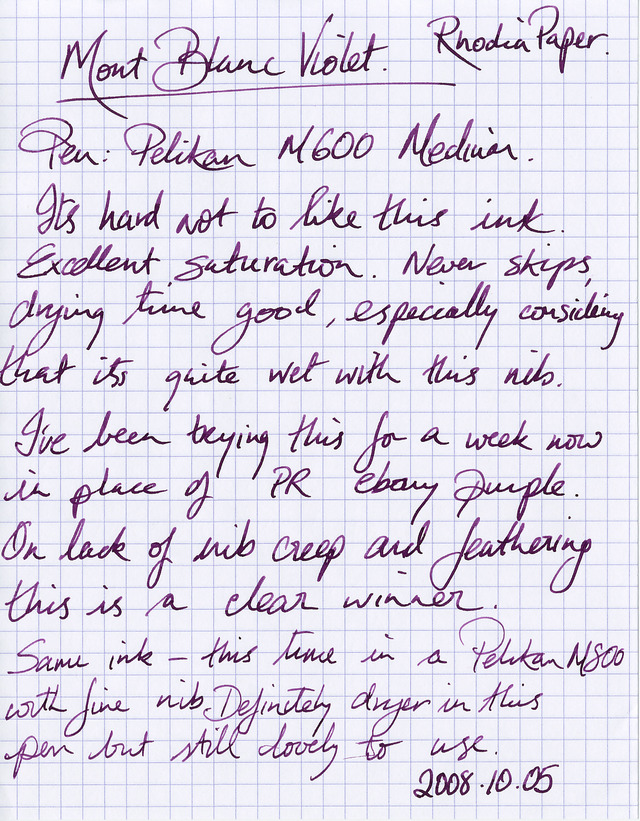 Mont Blanc Violet. Rhodia Paper.
Pen: Pelikan M600 Medium.
It's hard not to like this ink.
Excellent saturation. Never skips,
drying time good, especially considering
that its quite wet with this nib.
I've been trying this for a week now
in place of PR ebony purple.
On lack of nib creep and feathering
this is a clear winner.
Same ink – this time in a Pelikan M800
with fine nib. Definitely dryer in this
pen but still lovely to use.
2008.10.05